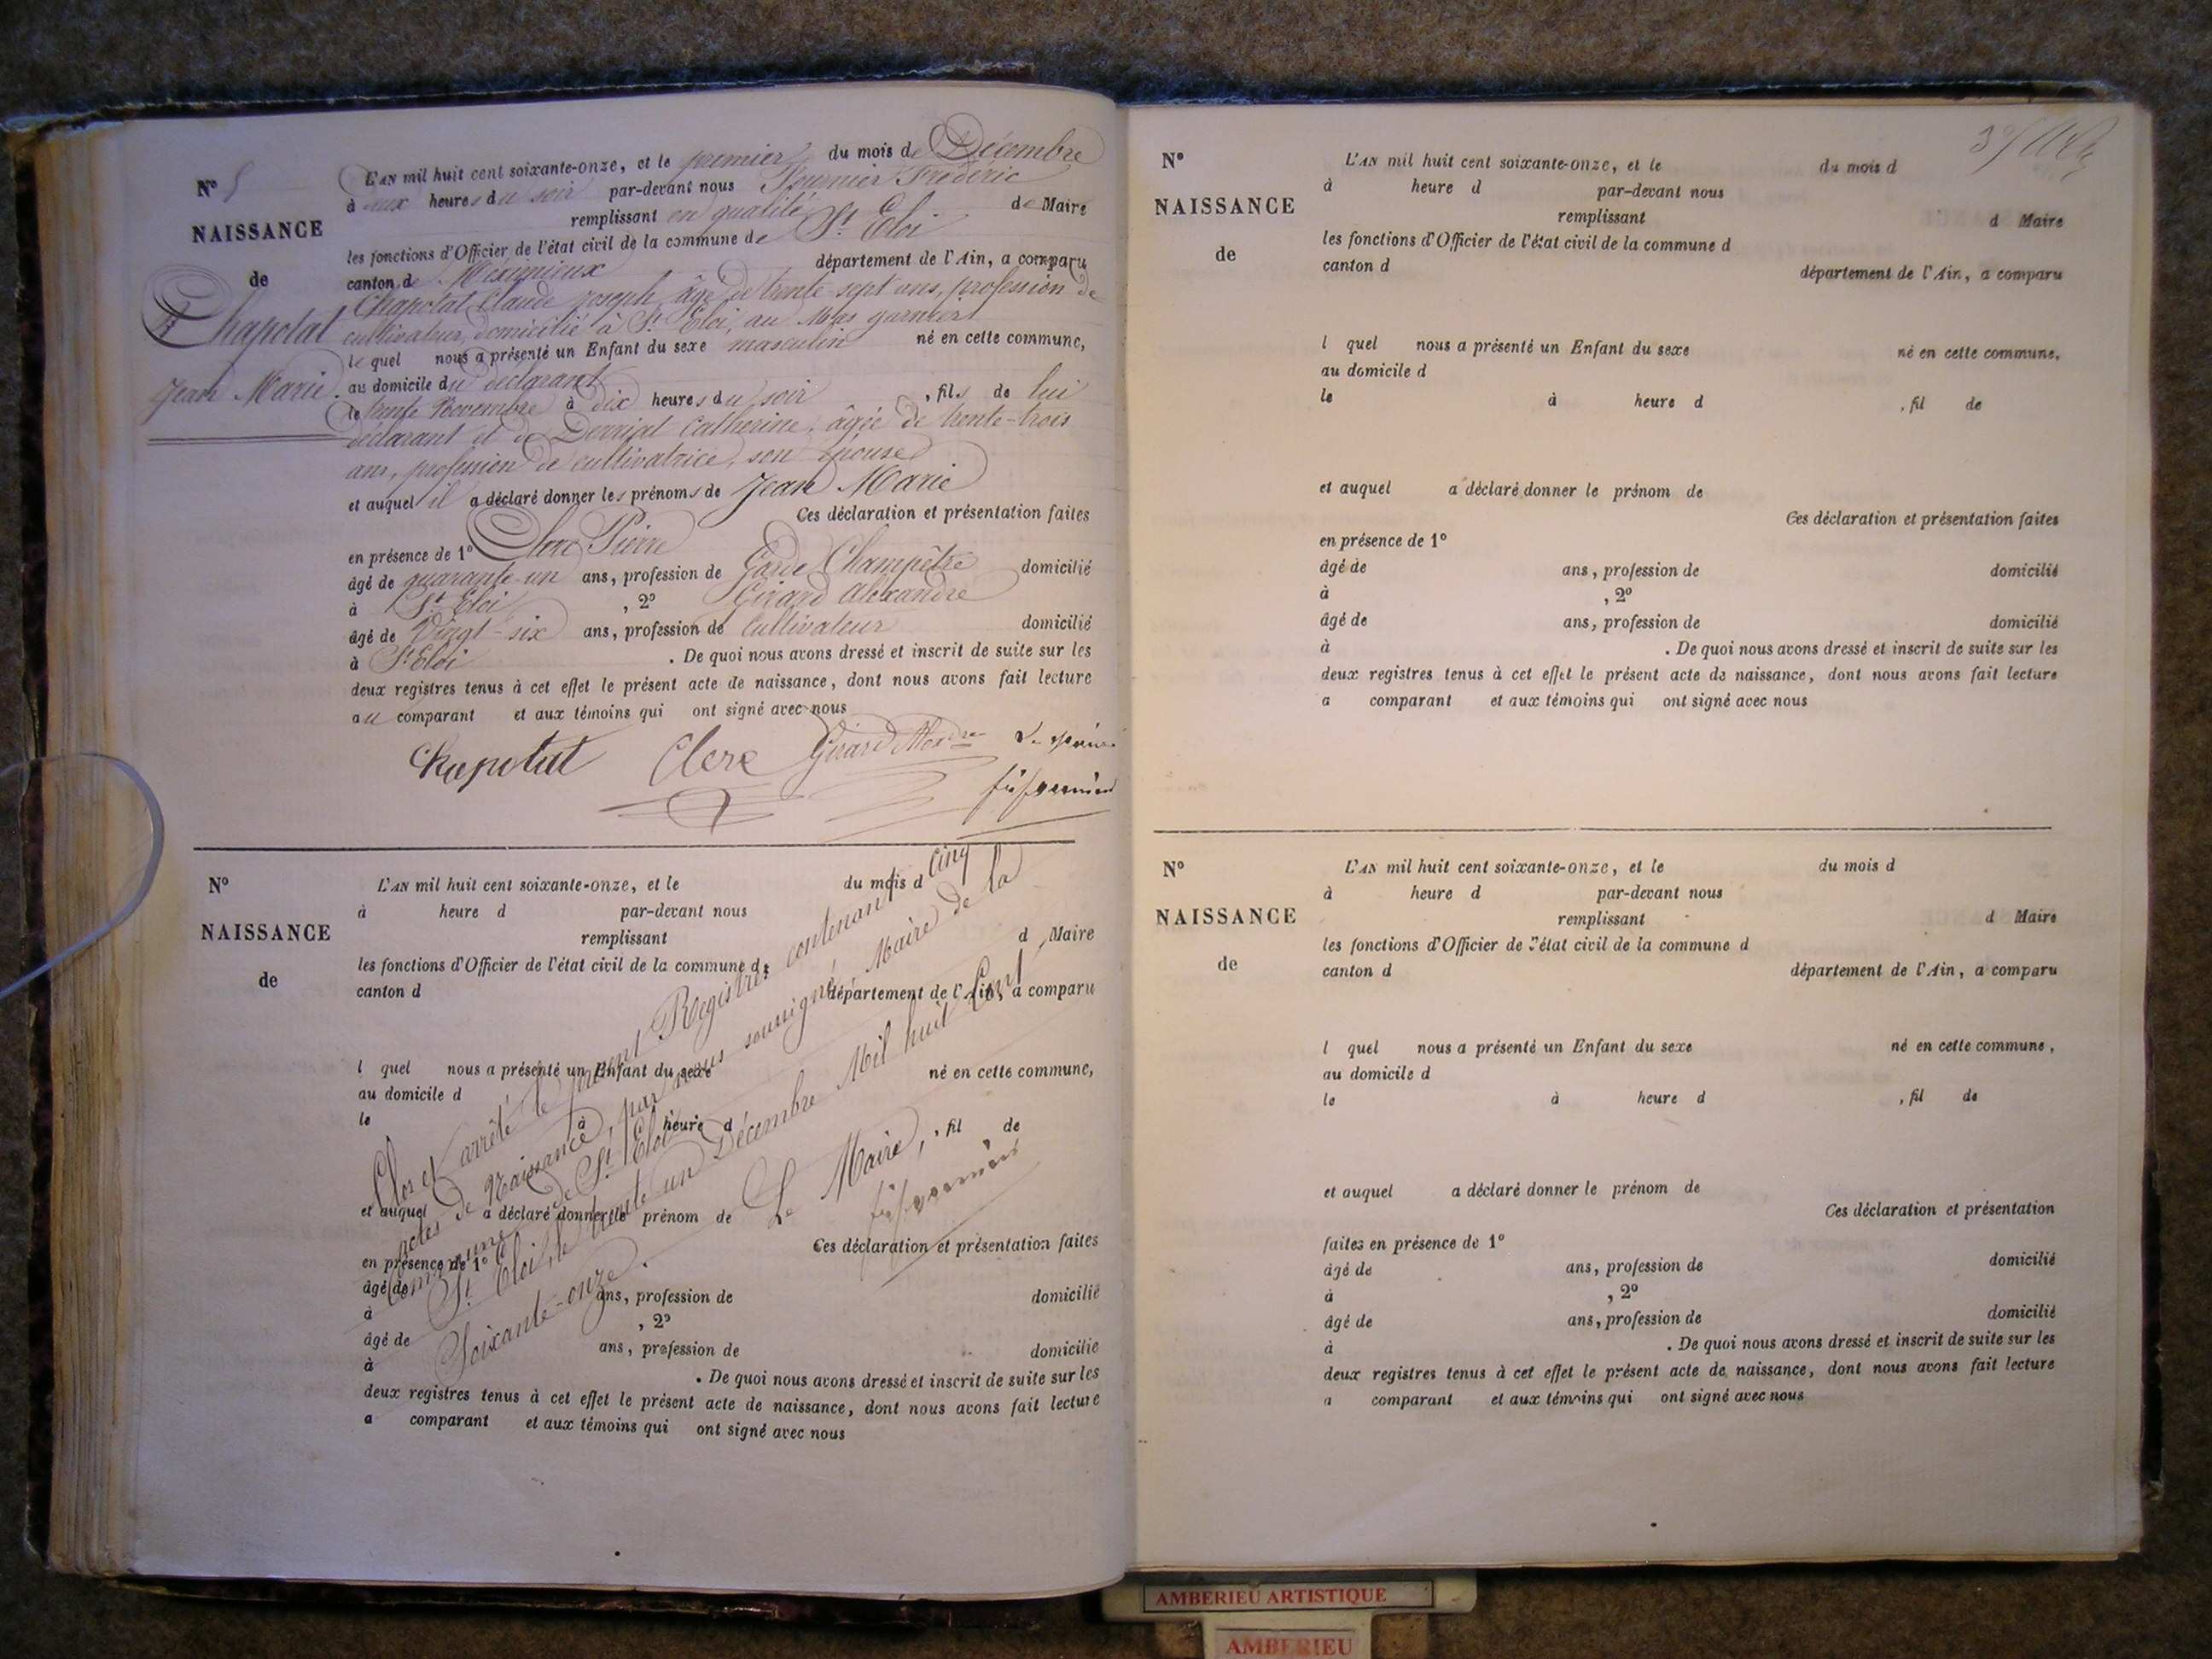 N° 5
NAISSANCE
de
Chapolat
Jean Marie.
L'AN mil huit cent soixante-onze, et le premier du mois de Décembre
à heures du soir par-devant nous Fournier Frédéric
remplissant en qualité de Maire
les fonctions d'Officier de l'état civil de la commune de St Eloi
canton de Meximieux département de l'Ain, a comparu
Chapolat Claude Joseph, âgé de trente-sept ans, profession de
cultivateur, domicilié à St Eloi, au Mas garnier
lequel nous a présenté un Enfant du sexe masculin né en cette commune,
au domicile du déclarant
le trente Novembre à dix heures du soir, fils de lui
déclarant et de Catherine, âgée de trente-trois
ans, profession de cultivatrice, son épouse
et auquel il a déclaré donner les prénoms de Jean Marie
Ces déclaration et présentation faites
en présence de 1° Clerc Pierre
âgé de quarante-un ans, profession de Garde Champêtre domicilié
à St Eloi, 2° Girard Alexandre
âgé de Vingt-six ans, profession de Cultivateur domicilié
à St Eloi. De quoi nous avons dressé et inscrit de suite sur les
deux registres tenus à cet effet le présent acte de naissance, dont nous avons fait lecture
au comparant et aux témoins qui ont signé avec nous
Chapolat Clerc Girard Alexdre
N°
NAISSANCE
de
L'AN mil huit cent soixante-onze, et le du mois d
à heure d par-devant nous
remplissant d Maire
les fonctions d'Officier de l'état civil de la commune d
canton d département de l'Ain, a comparu
l quel nous a présenté un Enfant du sexe né en cette commune,
au domicile d
le à heure d , fil de
et auquel a déclaré donner le prénom de
Ces déclaration et présentation faites
en présence de 1°
âgé de ans, profession de domicilié
à , 2°
âgé de ans, profession de domicilié
à . De quoi nous avons dressé et inscrit de suite sur les
deux registres tenus à cet effet le présent acte de naissance, dont nous avons fait lecture
a comparant et aux témoins qui ont signé avec nous
Clos et arrêté le présent Registre contenant cinq
actes de Naissance, par nous soussigné, Maire de la
Commune de St Eloi
St Eloi, le trente un Décembre Mil huit Cent
Soixante-onze.
Le Maire,
N°
NAISSANCE
de
L'AN mil huit cent soixante-onze, et le du mois d
à heure d par-devant nous
remplissant d Maire
les fonctions d'Officier de l'état civil de la commune d
canton d département de l'Ain, a comparu
l quel nous a présenté un Enfant du sexe né en cette commune,
au domicile d
le à heure d , fil de
et auquel a déclaré donner le prénom de
Ces déclaration et présentation faites
en présence de 1°
âgé de ans, profession de domicilié
à , 2°
âgé de ans, profession de domicilié
à . De quoi nous avons dressé et inscrit de suite sur les
deux registres tenus à cet effet le présent acte de naissance, dont nous avons fait lecture
a comparant et aux témoins qui ont signé avec nous
N°
NAISSANCE
de
L'AN mil huit cent soixante-onze, et le du mois d
à heure d par-devant nous
remplissant d Maire
les fonctions d'Officier de l'état civil de la commune d
canton d département de l'Ain, a comparu
l quel nous a présenté un Enfant du sexe né en cette commune,
au domicile d
le à heure d , fil de
et auquel a déclaré donner le prénom de
Ces déclaration et présentation
faites en présence de 1°
âgé de ans, profession de domicilié
à , 2°
âgé de ans, profession de domicilié
à . De quoi nous avons dressé et inscrit de suite sur les
deux registres tenus à cet effet le présent acte de naissance, dont nous avons fait lecture
a comparant et aux témoins qui ont signé avec nous
AMBERIEU ARTISTIQUE
AMBERIEU